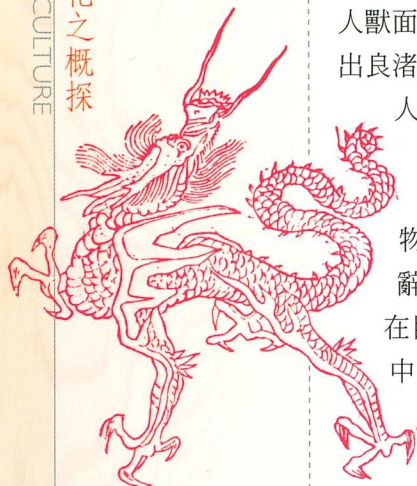 之概探
CULTURE
人獸面
出良渚
人
物
辭
在
中